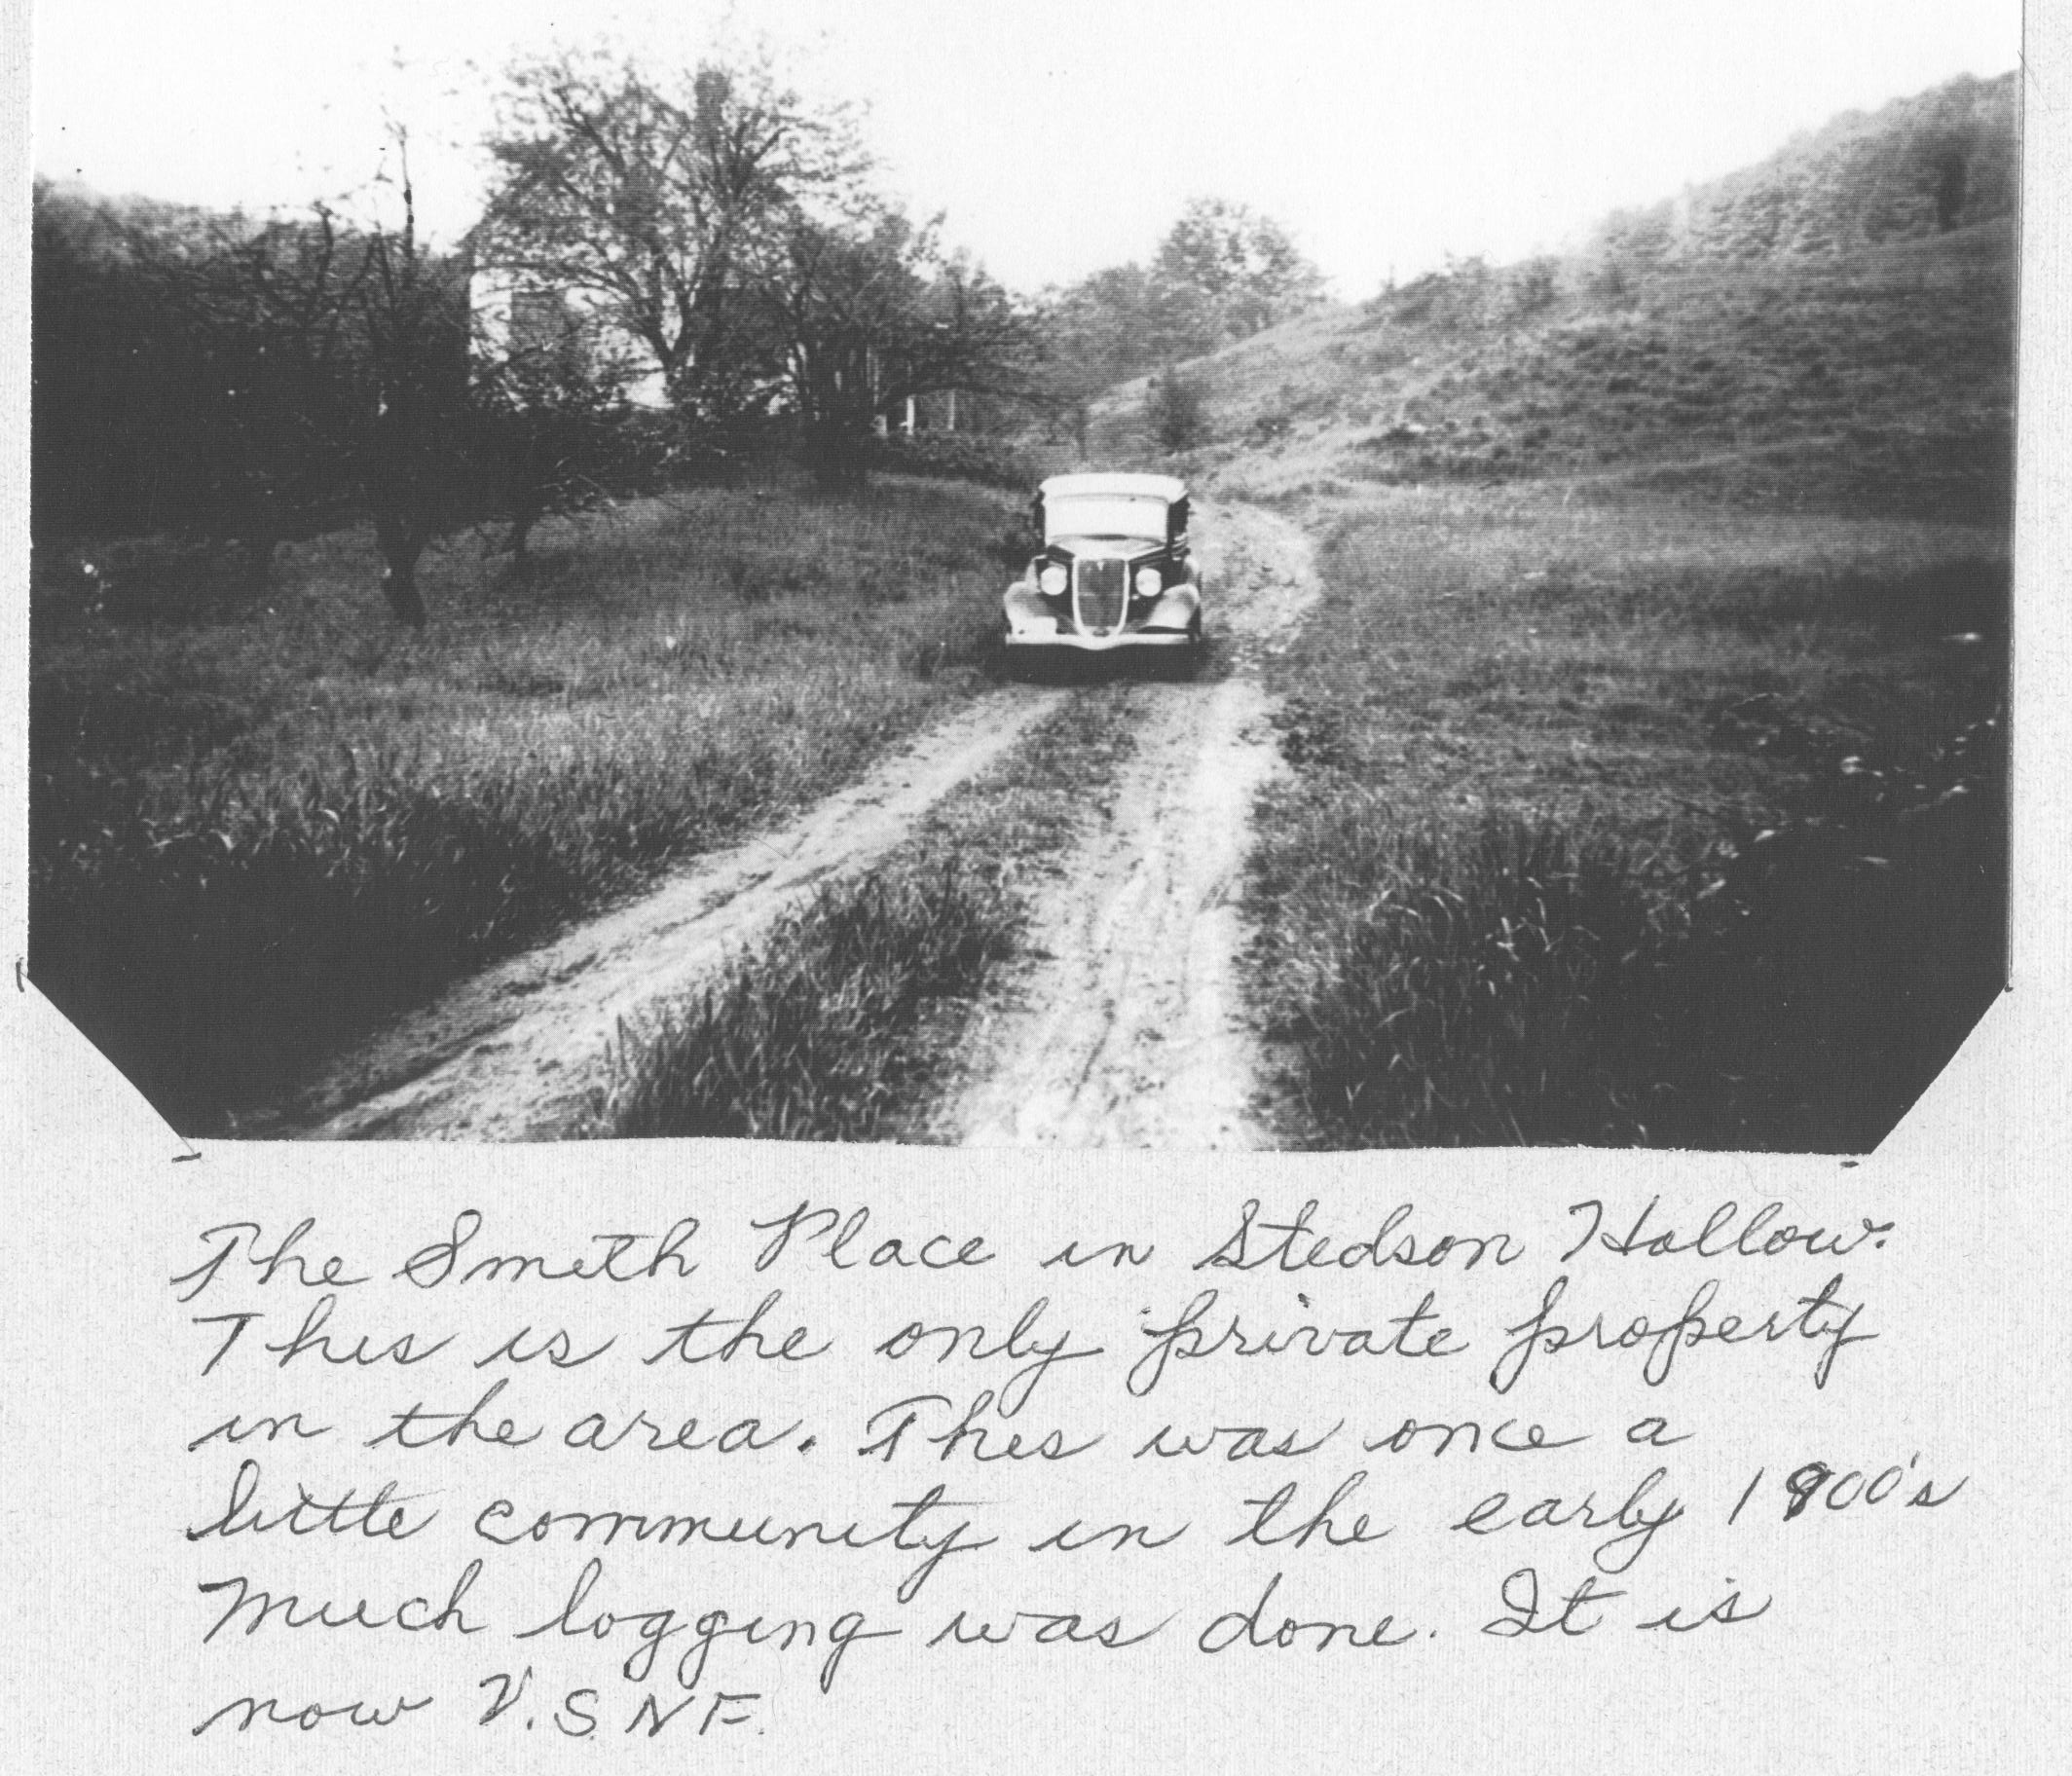 The Smith Place in Stedson Hollow.
This is the only private property
in the area. This was once a
little community in the early 1900's
Much logging was done. It is
now U.S.N.F.